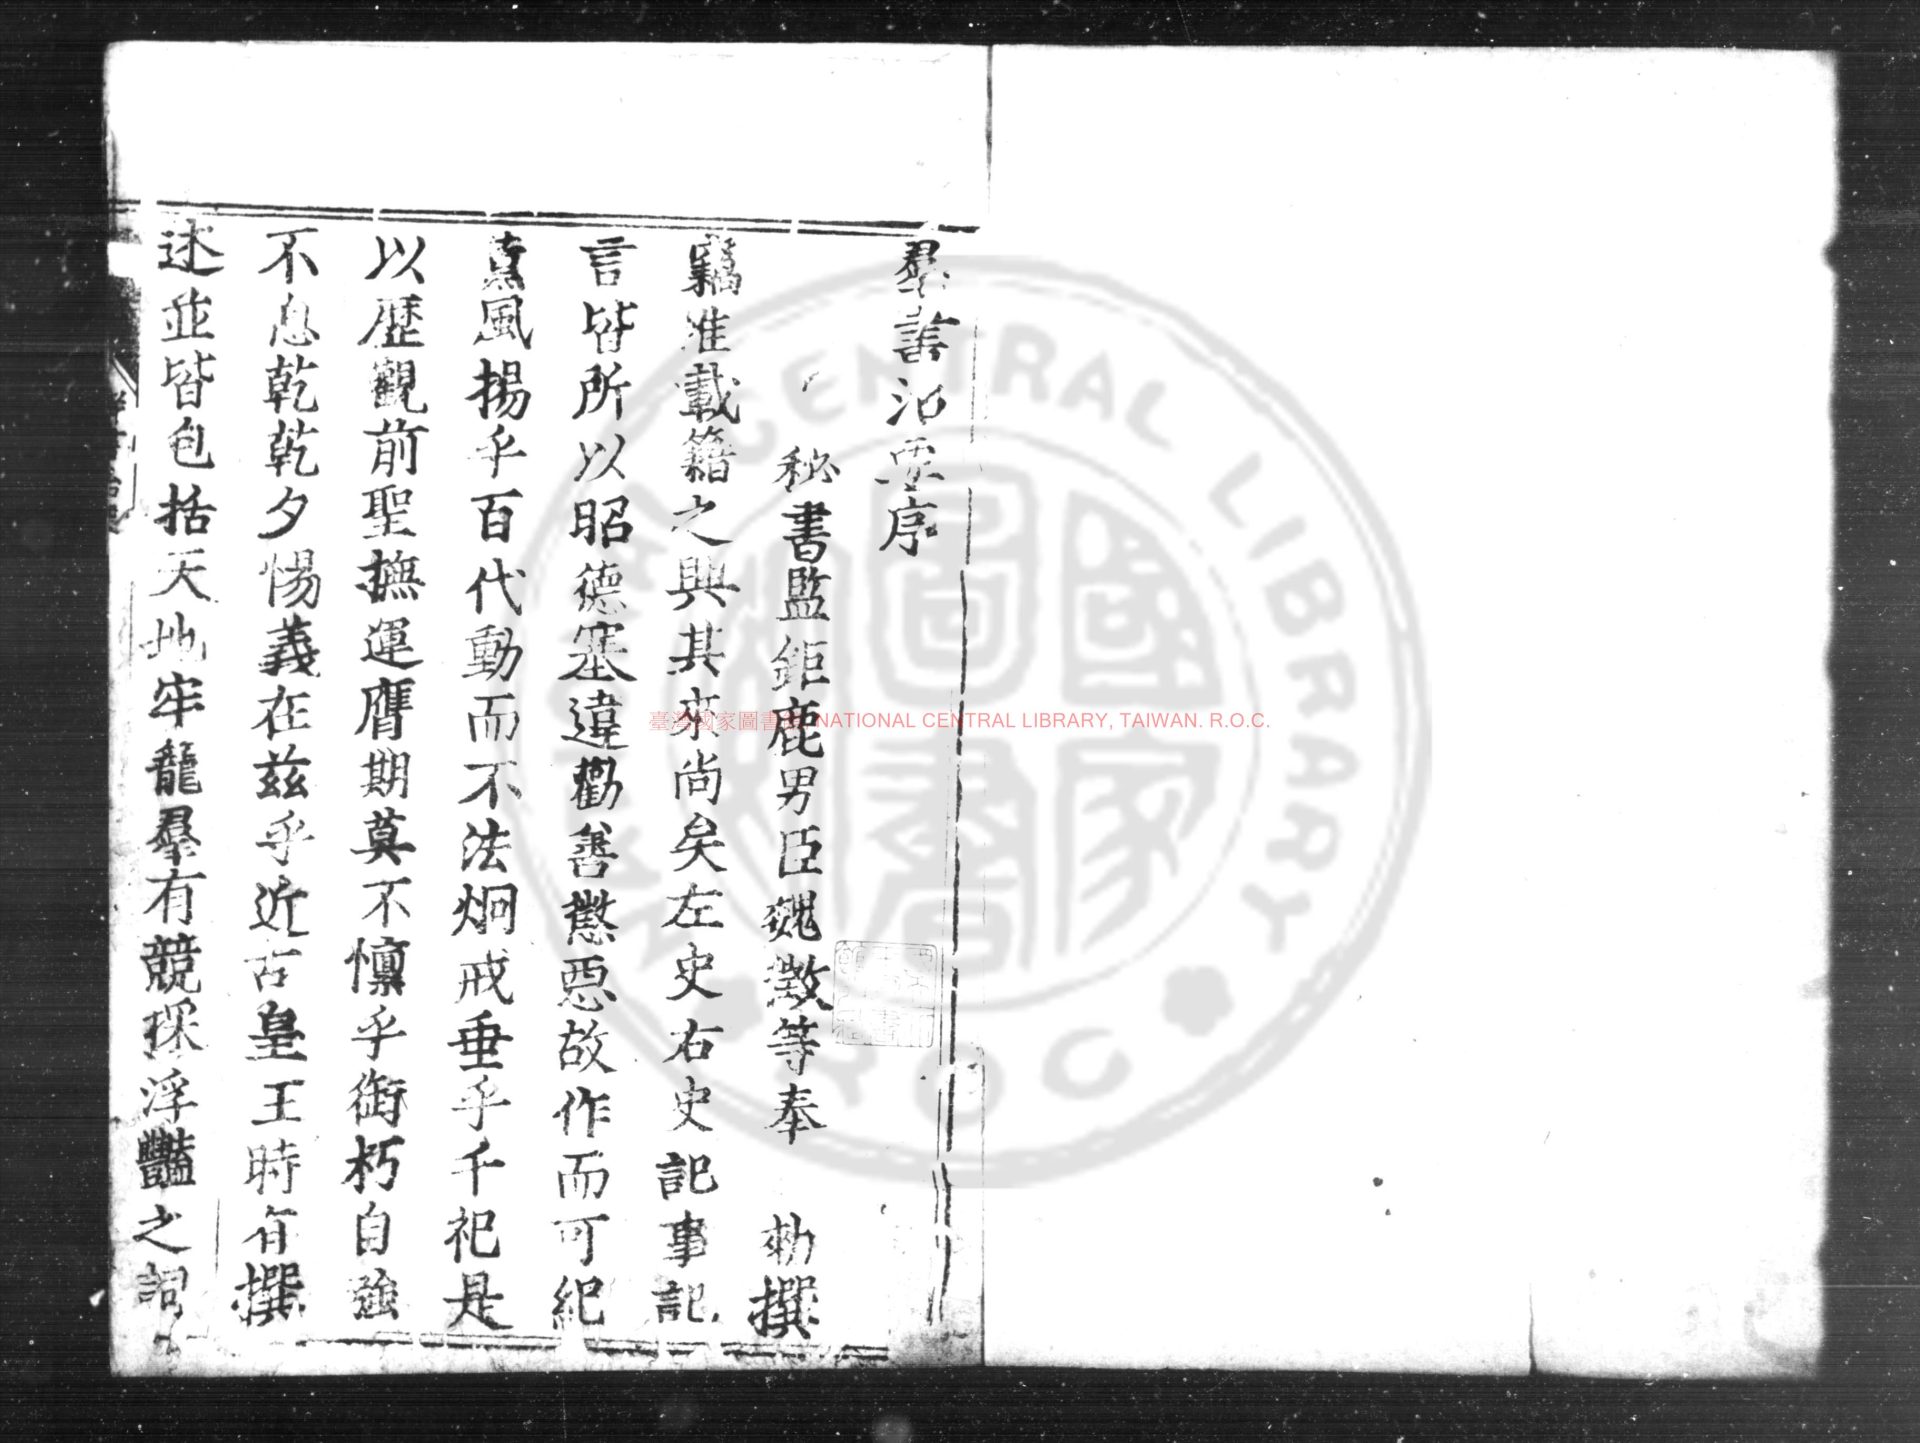 羣書治要序
秘書監鉅鹿男臣魏徵等奉 勑撰
竊惟載籍之興其來尚矣左史右史記事記
言皆所以昭德塞違勸善懲惡故作而可紀
薰風揚乎百代動而不法炯戒垂乎千祀是
以歷觀前聖撫運膺期莫不懍乎御朽自強
不息乾乾夕惕義在茲乎近古皇王時有撰
述並皆包括天地牢籠羣有競採浮豔之詞
臺灣國家圖書館 NATIONAL CENTRAL LIBRARY, TAIWAN. R.O.C.
NATIONAL CENTRAL LIBRARY
R.O.C
國家圖書